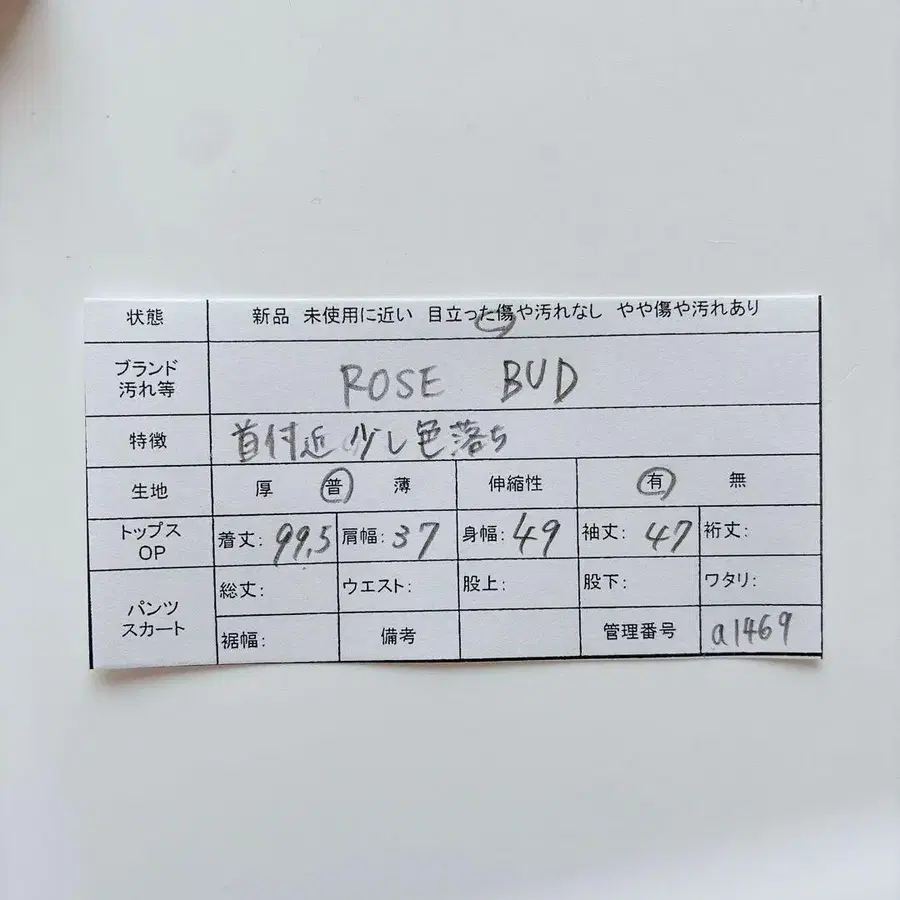 状態 新品 未使用に近い 目立った傷や汚れなし やや傷や汚れあり
ブランド
汚れ等
ROSE BUD
特徴 首付近少し色落ち
生地 厚 普 薄 伸縮性 有 無
トップス
OP
着丈: 99.5 肩幅: 37 身幅: 49 袖丈: 47 裄丈:
パンツ
スカート
総丈: ウエスト: 股上: 股下: ワタリ:
裾幅: 備考 管理番号 a1469